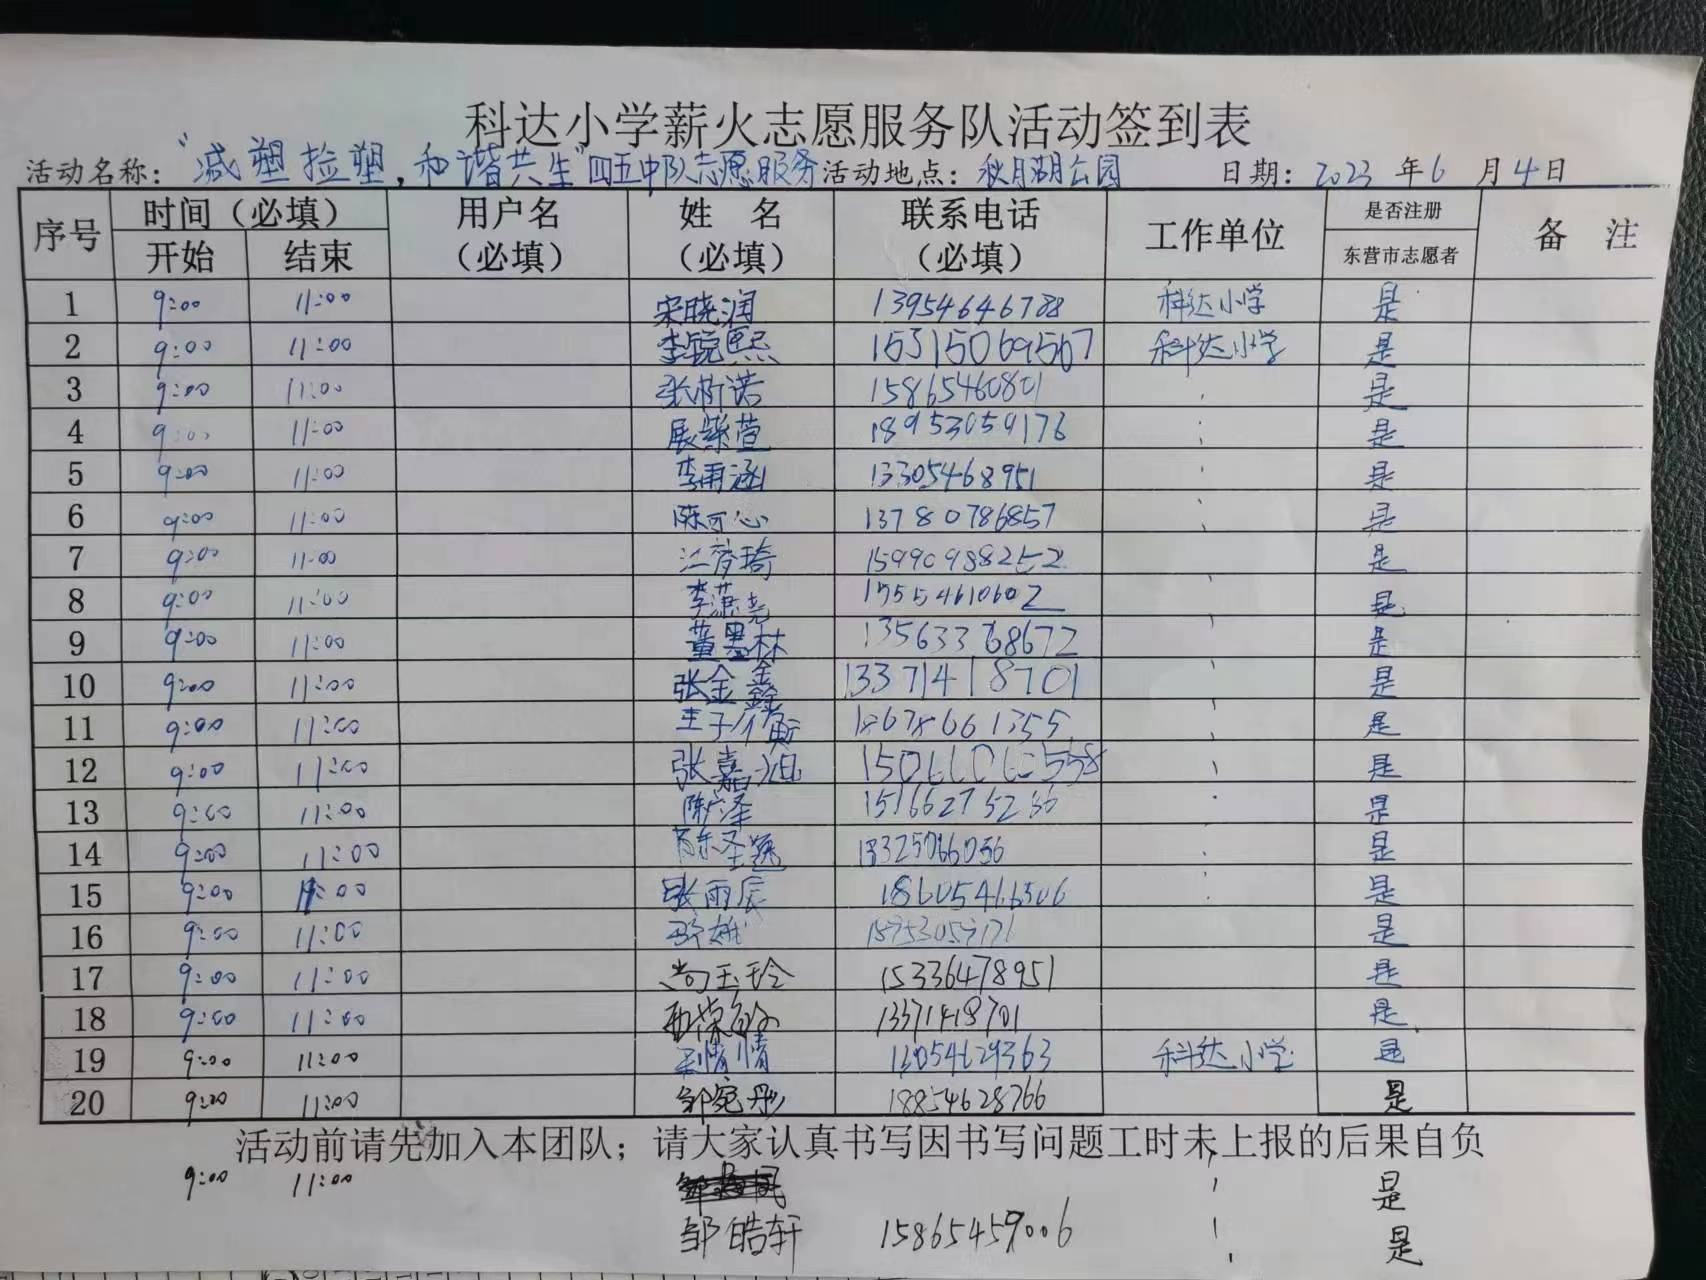 科达小学薪火志愿服务队活动签到表
活动名称："减塑捡塑,和谐共生"四五中队志愿服务 活动地点：秋月湖公园 日期：2023 年 6 月 4 日
序号 时间（必填） 用户名 姓 名 联系电话 工作单位 是否注册 备 注
开始 结束 （必填） （必填） （必填） 东营市志愿者
1 9:00 11:00 宋晓润 13954646788 科达小学 是
2 9:00 11:00 李锐熙 15315069567 科达小学 是
3 9:00 11:00 张斯诺 15865460801 是
4 9:00 11:00 展紫萱 18953059176 是
5 9:00 11:00 李雨涵 13305468951 是
6 9:00 11:00 陈可心 13780786857 是
7 9:00 11:00 江梦琦 15990988252 是
8 9:00 11:00 李潇尧 17554610602 是
9 9:00 11:00 董墨林 13563368672 是
10 9:00 11:00 张金鑫 13371418701 是
11 9:00 11:00 王子 18678661355 是
12 9:00 11:00 张嘉旭 是
13 9:00 11:00 陈广泽 是
14 9:00 11:00 18325066056 是
15 9:00 11:00 张雨辰 18605466506 是
16 9:00 11:00 是
17 9:00 11:00 尚玉玲 15336478951 是
18 9:00 11:00 13371418701 是
19 9:00 11:00 情情 13054629363 科达小学 是
20 9:00 11:00 邹宛彤 18854628766 是
活动前请先加入本团队；请大家认真书写因书写问题工时未上报的后果自负
9:00 11:00 是
邹皓轩 15865459006 是